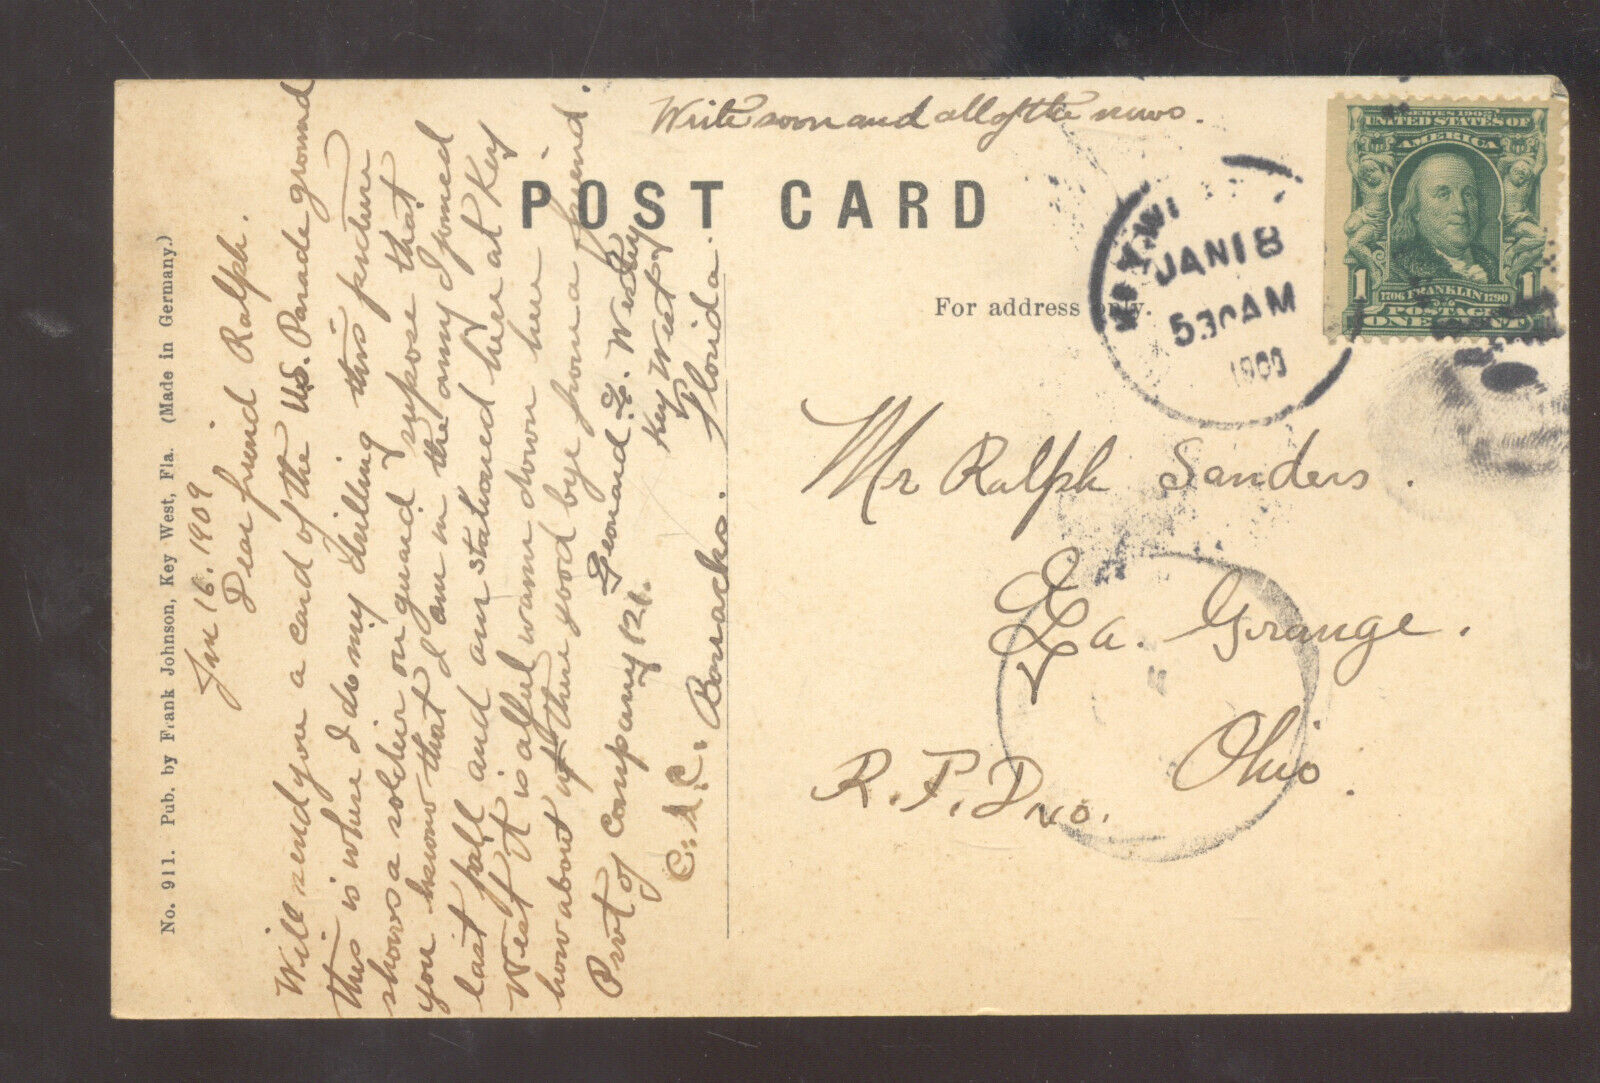 No. 911. Pub. by Frank Johnson, Key West, Fla. (Made in Germany.)
Jan 16. 1909
Dear friend Ralph.
Will send you a card of the U.S. Parade ground
this is where I do my drilling this picture
shows a soldier on guard I suppose that
you know that I am in the army I joined
last fall and am stationed here at Key
West it is alful warm down here
how about up there good bye from a friend.
Privt of Company
Key West
C. A. C. Baracks. Florida.
Write soon and all of the news.
POST CARD
For address only.
JAN 18
5 30 AM
1909
SERIES 1902
UNITED STATES OF
AMERICA
1 1706 FRANKLIN 1790 1
POSTAGE
ONE CENT
Mr Ralph Sanders.
La. Grange.
Ohio.
R. F. D No.